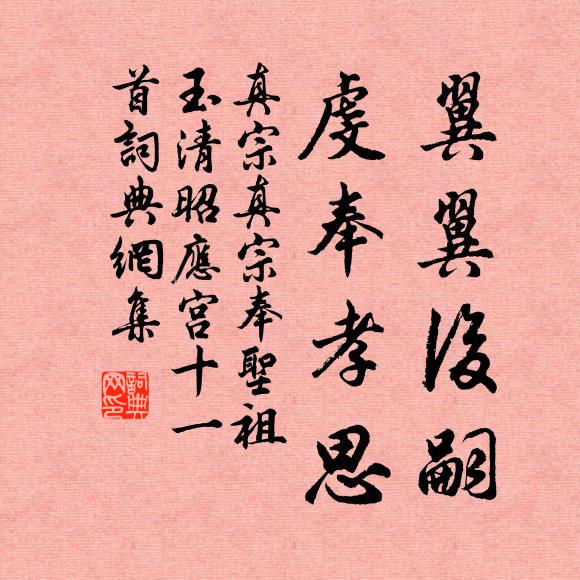 翼翼後嗣
虔奉孝思
真宗真宗奉聖祖
玉清昭應宮十一
首詞典網集
詞典
网印